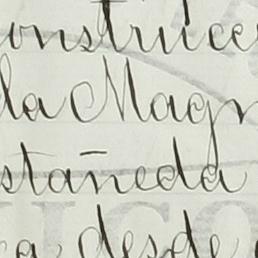 onstrucc
la Magn
stañeda
a desde